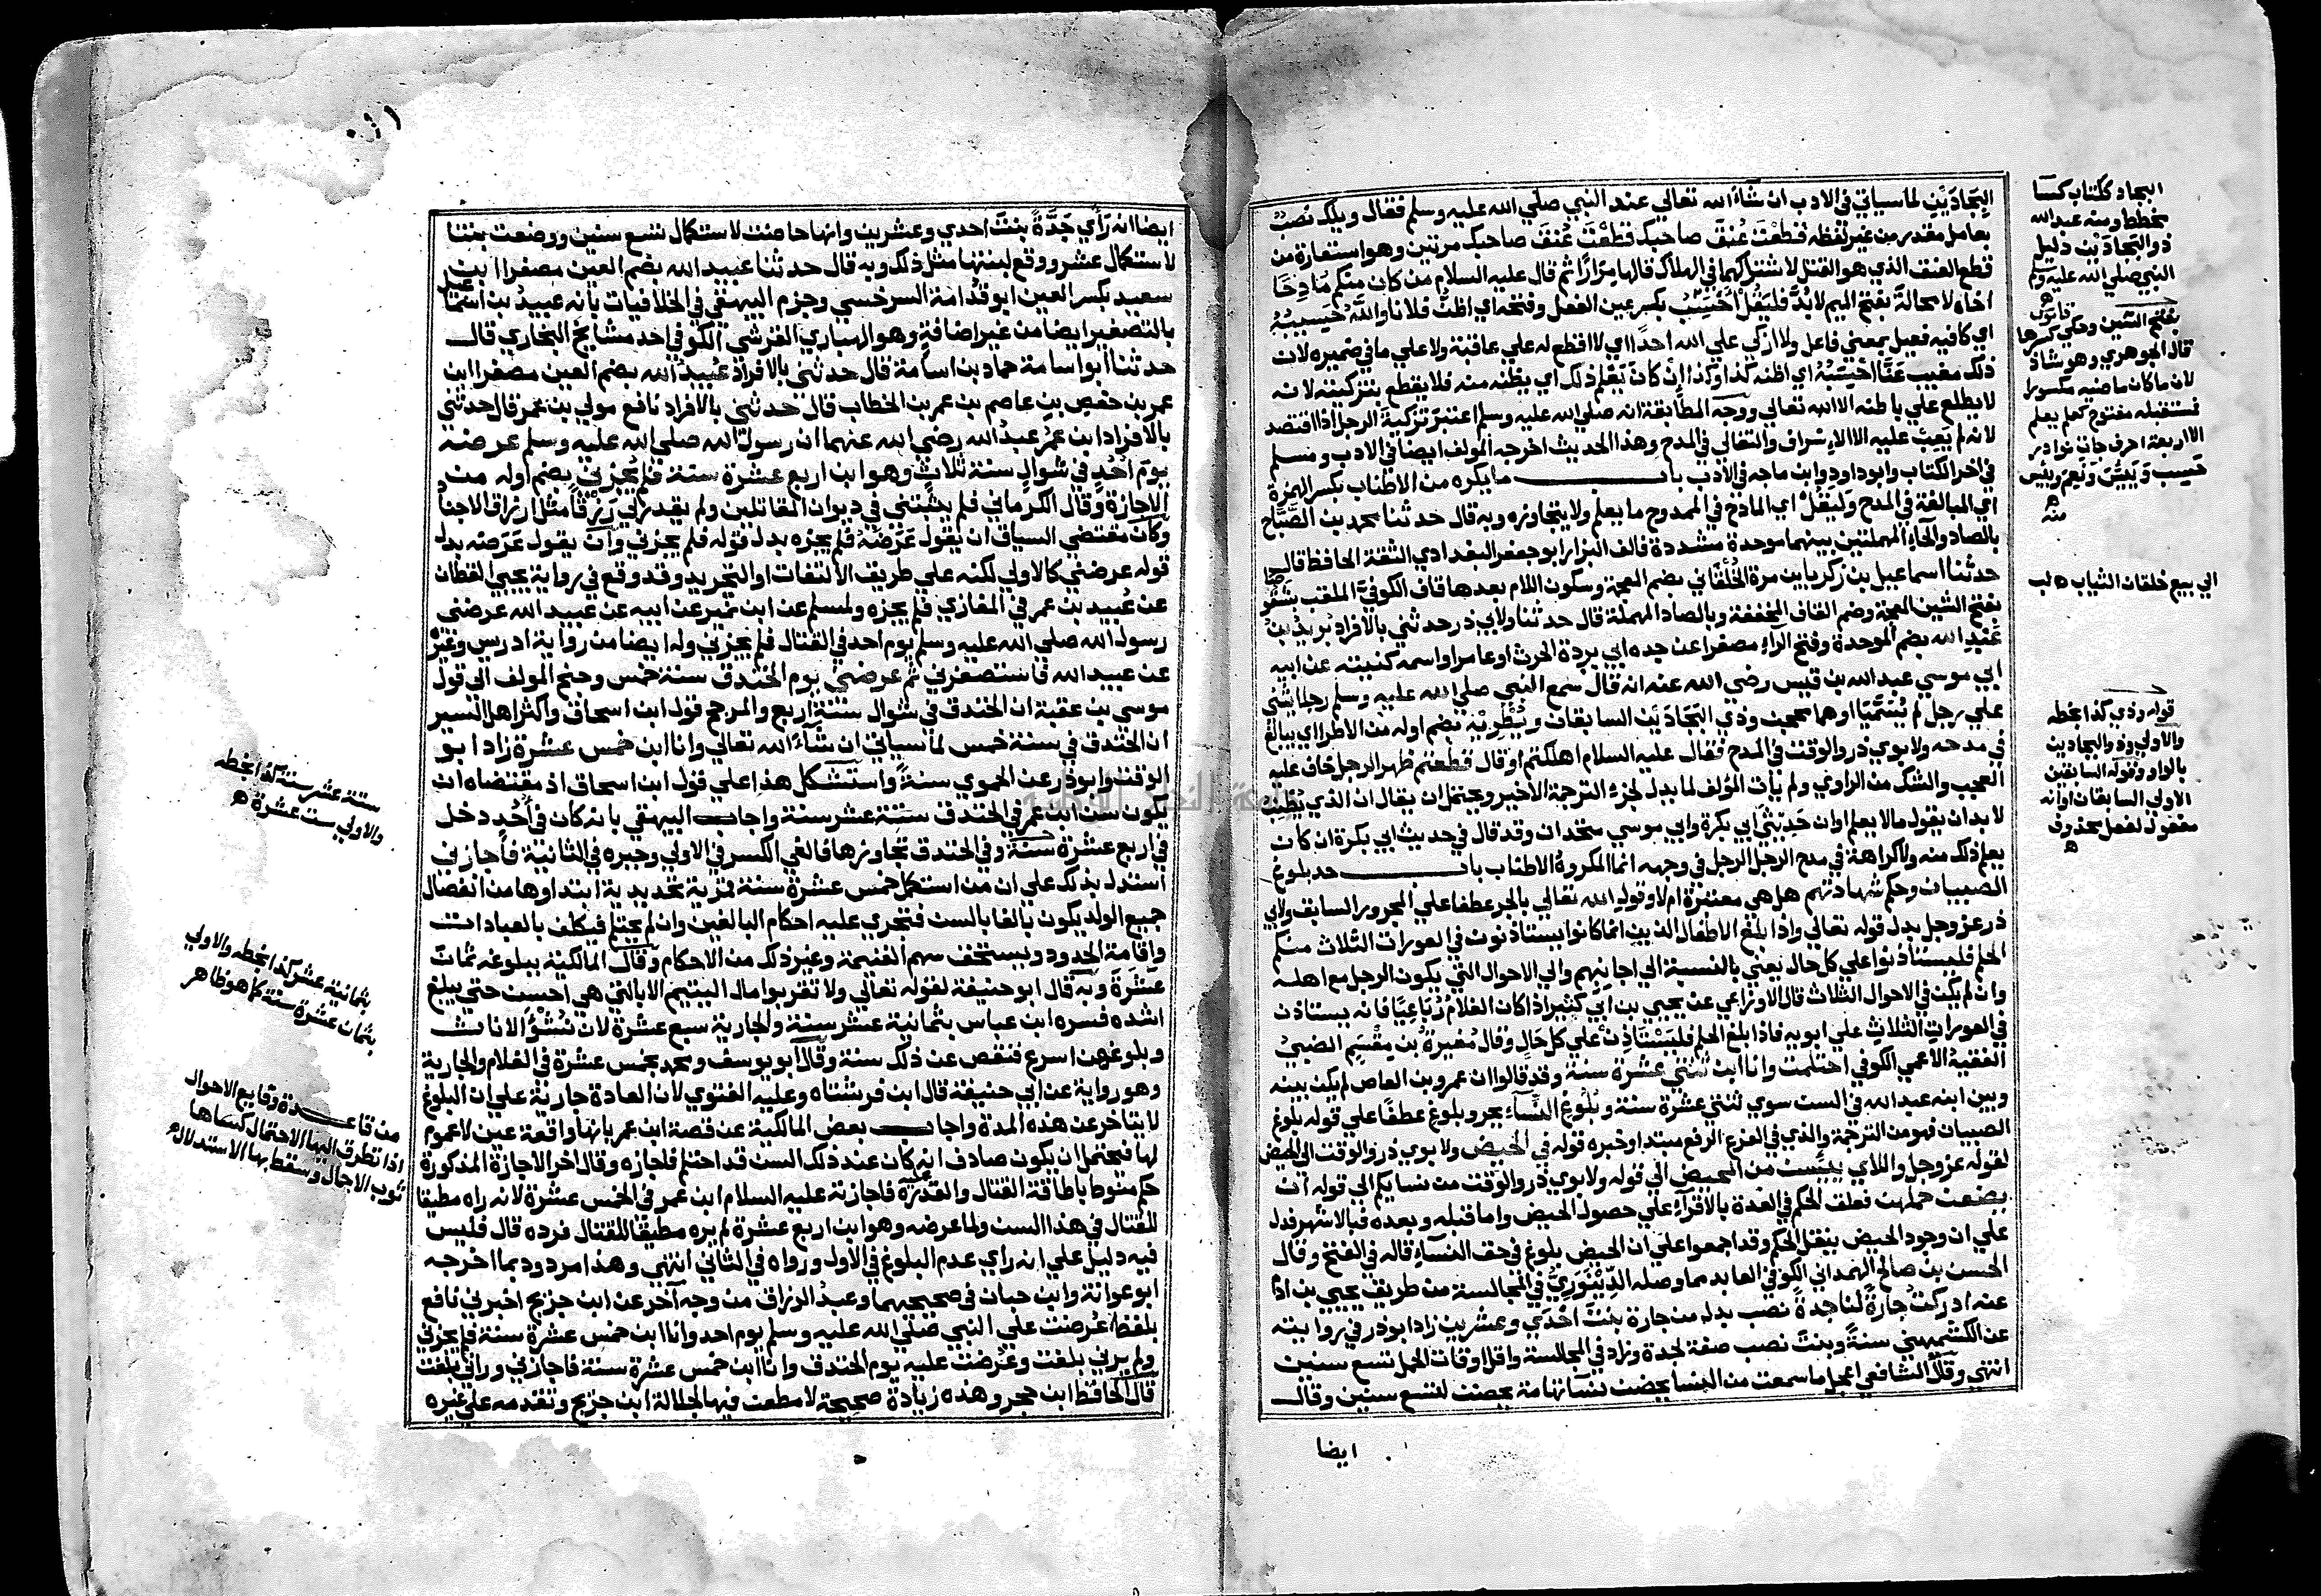 البِجَادَيْنِ لما سياتي في الادب ان شاء الله تعالي عند النبي صلي الله عليه وسلم فقال ويلك نصب
بعامل مقدر من غير لفظه قطعْتَ عُنقَ صاحبك قطعْتَ عُنقَ صاحبك مرتين وهو استعارة من
قطع العنق الذي هو القتل لاشتراكهما في الهلاك قالها مِرَارًا ثم قال عليه السلام من كان منكم مَادِحًا
اخاه لا محالة بفتح الميم لابُدَّ فليَقُل اَحْسِبُ بكسر عين الفعل وفتحه اي اظنّ فلانا واللهُ حَسِيبُهُ
اي كافيه فعيل بمعني فاعل ولا ازكي علي الله احدًا اي لا اقطع له علي عاقبة ولا علي ما في ضميره لان
ذلك مغيب عَنَّا اَحْسِبُهُ اي اظنه كذا وكذا اِنْ كانَ يَعْلم ذلك اي يظنه منه فلا يقطع بتزكيته لانه
لا يطلع علي باطنه الا الله تعالي ووجه المطابقة انه صلي الله عليه وسلم اعتبر تزكية الرجل اذا اقتصد
لانه لم يَعِبْ عليه الا الاسْراف والتغالي في المدح وهذا الحديث اخرجه المولف ايضا في الادب ومسلم
في اخر الكتاب وابو داود وابن ماجه في الادب باب ما يكره من الاطناب بكسر الهمزة
اي المبالغة في المدح وَليَقُلْ اي المادح في الممدوح ما يعلم ولا يتجاوزه وبه قال حدثنا محمد بن الصَّبَّاح
بالصاد والحاء المهملتين بينهما موحدة مشددة فالف البزار ابو جعفر البغدادي الثقة الحافظ قال
حدثنا اسماعيل بن زكريا بن مرة الخُلْقَاني بضم المعجمة وسكون اللام بعدها قاف الكوفيّ الملقب بشَقُوصَا
بفتح الشين المعجمة وضم القاف المخففة وبالصاد المهملة قال حدثنا ولابي ذر حدثني بالافراد بُرَيْدُ بنُ
عَبْدِ الله بضم الموحدة وفتح الراء مصغرا عن جده ابي بردة الحرث او عامر او اسمه كنيته عن ابيه
ابي موسي عبد الله بن قيس رضي الله عنه انه قال سمع النبي صلي الله عليه وسلم رجلا يثني
علي رجل لم يُسَمَّيَا او هما محجن وذي البَجَادَيْن السابقان ويُطْرِيْهِ بضم اوله من الاطراء اي يبالغ
في مدحه ولابوي ذر والوقت في المدح فقال عليه السلام اهلكتم او قال قطعتم ظهر الرجل خاف عليه
العجب والشك من الراوي ولم يأت المؤلف لما يدل لجزء الترجمة الاخير ويحتمل ان يقال ان الذي يُطْنِب
لا بد ان يقول ما لا يعلم او ان حَدِيْثَيْ ابي بكرة وابي موسي متحدان وقد قال في حديث ابي بكرة ان كان
يعلم ذلك منه ولا كراهة في مدح الرجل الرجل في وجهه انما المكروهُ الاطناب باب حد بلوغ
الصبيان وحكم شهادتهم هل هي معتبرة ام لا وقولِ الله تعالي بالجر عطفا علي المجرور السابق ولابي
ذر عز وجل بدل قوله تعالي واذا بلغ الاطفال الذين انما كانوا يستاذنون في العورات الثلاث منكم
الحلم فليستاذنوا علي كل حال يعني بالنسبة الي اجانبهم والي الاحوال التي يكون الرجل مع اهله
وان لم يكن في الاحوال الثلاث قال الاوزاعي عن يحيي بن ابي كثير اذا كان الغلامُ رُبَاعِيًّا فانه يستاذن
في العورات الثلاث علي ابويه فاذا بلغ الحلم فليَسْتَاذِنْ علي كل حَالٍ وقال مُغِيرةُ بن مِقْسَمِ الضبيّ
الفقيهُ الاعمي الكوفي احتلمت وانا ابن ثنتي عشرة سنة وقد قالوا ان عمرو بن العاص لم يكن بينه
وبين ابنه عبد الله في السن سوي ثنتي عشرة سنة وبُلوغِ النِّسَاءِ بجر وبلوغ عطفًا علي قوله بلوغ
الصبيان فهو من الترجمة والذي في الفرع الرفع مبتدا وخبره قوله في الحيض ولابوي ذر والوقت الي الحيض
لقوله عز وجل واللاي يَئِسن من المحيض الي قوله ولابوي ذر والوقت من نسايكم الي قوله ان
يضعن حملهن فعلق الحكم في العدة بالاقراء علي حصول الحيض واما قبله وبعده فبالاشهر فدل
علي ان وجود الحيض ينقل الحكم وقد اجمعوا علي ان الحيض بلوغ في حق النساءِ قاله في الفتح وقال
الحسن بن صالح الهمداني الكوفي العابد مما وصله الدِّيْنَوَرِيُّ في المجالسة من طريق يحيي بن ادم
عنه ادركتُ جارةً لنا جدةً نصب بدل من جارة بنتَ احْدَي وعشرين زاد ابو ذر في روايته
عن الكشميهني سنةً وبنتَ نصب صفة لجدة وزاد في المجالسة واقل اوقات الحمل تسع سنين
انتهي وقال الشافعي اعجل ما سمعت من النسا يحضن نسا تهامة يحضن لتسع سنين وقال
ايضا
البجاد ككتاب كسا
مخطط ومنه عبد الله
ذو البجادَيْن دليل
النبي صلي الله عليه وسلم
قاموس
بفتح السّين وحكي كسرها
قال الجوهري وهو شاذ
لان ما كان ماضيه مكسورا
فمستقبله مفتوح كعلم يعلم
الا اربعة احرف جات نوادر
حَسِب ويَبِسَ ونَعِمَ ويئس
منه
الي بيع خلقان الثياب ه لب
قوله وذي كذا بخطه
والاولي وذو البجادين
بالواو وقوله السابقين
الاولي السابقان او انه
مفعول لفعل محذوف
ه
ايضا انه رَأي جَدَّةً بنتَ احدي وعشرين وانها حاضت لاستكمال تسع سنين ووضعت بنتا
لاستكمال عشر ووقع لبنتها مثل ذلك وبه قال حدثنا عبيد الله بضم العين مصغرا ابن
سعيد بكسر العين ابو قُدامة السرخسي وجزم البيهقي في الخلافيات بانه عبيدُ بن اسماعيل
بالتصغير ايضا من غير اضافةٍ وهو الهباري القرشي الكوفي احد مشايخ البخاري قال
حدثنا ابو اسامة حماد بن اسامة قال حدثني بالافراد عُبيد الله بضم العين مصغرا ابن
عمر بن حفص بن عاصم بن عمر بن الخطاب قال حدثني بالافراد نافع مولي بن عمر قال حدثني
بالافراد ابن عمُر عبدُ الله رضي الله عنهما ان رسول الله صلي الله عليه وسلم عرضه
يومَ اُحُدٍ في شوال سنة ثلاث وهو ابن اربع عشرة سنة فلم يُجزني بضم اوله من
الاجازة وقال الكرماني فلم يثبتني في ديوان المقاتلين ولم يقدر لي رِزْقًا مثل ارزاق الاجناد
وكان مقتضي السياق ان يقول عَرَضَهُ فلم يجزه بدل قوله فلم يجزني وان يقول عَرَضه بدل
قوله عرضني كالاولي لكنه علي طريق الالتفات او التجريد وقد وقع في رواية يحيي القطان
عن عُبيد بن عمر في المغازي فلم يجزه ولمسلم عن ابن نمير عن ابيه عن عبيد الله عرضني
رسول الله صلي الله عليه وسلم يوم احد في القتال فلم يجزني وله ايضا من رواية ادريس وغيره
عن عبيد الله فاستصغرني ثم عرضني يوم الخندق سنة خمس وجنح المولف الي قول
موسي بن عقبة ان الخندق في شوال سنة اربع والمرجح قول ابن اسحاق واكثر اهل السير
ان الخندق في سنة خمس لما سياتي ان شاءَ الله تعالي وانا ابن خمس عشرة زاد ابو
الوقت وابو ذر عن الحموي سنةً واستشكل هذا علي قول ابن اسحاق اذ مقتضاه ان
يكون سن ابن عمر في الخندق ستة عشر سنة واجاب البيهقي بانه كان في اُحُدٍ دخل
في اربع عشرة سنة وفي الخندق تجاوزها فالغي الكسر في الاولي وجبره في الثانية فاجازني
استدل بذلك علي ان من استكمل خمس عشرة سنة قمرية تحديدية ابتداوها من انفصال
جميع الولد يكون بالغا بالسن فتجري عليه احكام البالغين وان لم يحتلم فيكلف بالعبادات
واقامة الحدود ويستحق سهم الغنيمة وغير ذلك من الاحكام وقال المالكية ببلوغه ثمان
عشرة وبه قال ابو حنيفة لقوله تعالي ولا تقربوا مال اليتيم الا بالتي هي احسن حتي يبلغ
اشده فسره ابن عباس بثمانية عشر سنة والجارية سبع عشرة لان نُشْؤَ الاناث
وبلوغهن اسرع فنقص عن ذلك سنة وقال ابو يوسف ومحمد بخمس عشرة في الغلام والجارية
وهو رواية عن ابي حنيفة قال ابن فرشتاه وعليه الفتوي لان العادة جارية علي ان البلوغ
لا يتاخر عن هذه المدة واجاب بعض المالكية عن قصة ابن عمر بانها واقعة عين لا عموم
لها فيحتمل ان يكون صادف انه كان عند ذلك السن قد احتلم فاجازه وقال اخر الاجازة المذكورة
حكم منوط باطاقة القتال والقدرة عليه فاجازته عليه السلام ابن عمر في الخمس عشرة لانه راه مطيقا
للقتال في هذا السن ولما عرضه وهو ابن اربع عشرة لم يره مطيقا للقتال فرده قال فليس
فيه دليل علي انه راي عدم البلوغ في الاول وراه في الثاني انتهي وهذا مردود بما اخرجه
ابو عوانة وابن حبان في صحيحهما وعبدُ الرزاق من وجه اخر عن ابن جريج اخبرني نافع
بلفظ عُرضت علي النبي صلي الله عليه وسلم يوم احد وانا ابن خمس عشرة سنة فلم يجزني
ولم يرني بلغت وعُرضت عليه يوم الخندق وانا ابن خمس عشرة سنة فاجازني وراني بلغت
قال الحافظ ابن حجر وهذه زيادة صحيحة لا مطعن فيها لجلالة ابن جريج وتقدمه علي غيره
ستة عشر سنة كذا بخطه
والاولي ست عشرة ه
بثمانية عشر كذا بخطه والاولي
بثمان عشرة سنة كما هو ظاهر
من قاعدة وقايع الاحوال
اذا تطرق اليها الاحتمال كساها
ثوب الاجمال وسقط بها الاستدلال